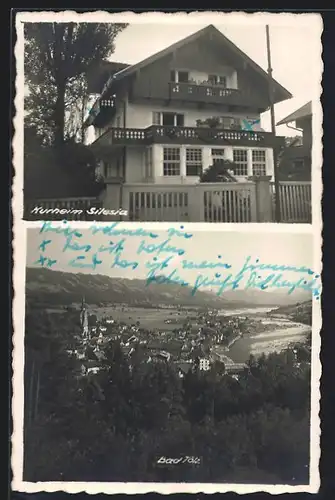 Kurheim Silesia
Hier wohnen wir
x das ist boten
xx und das ist mein Zimmer
Bad Tölz